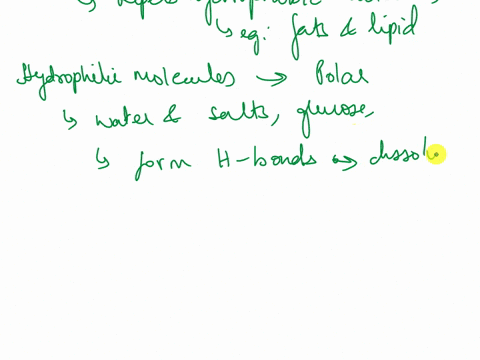 ↳ eg: fats & lipid
Hydrophilic molecules → Polar
↳ water & salts, glucose,
↳ form H-bonds → dissolv